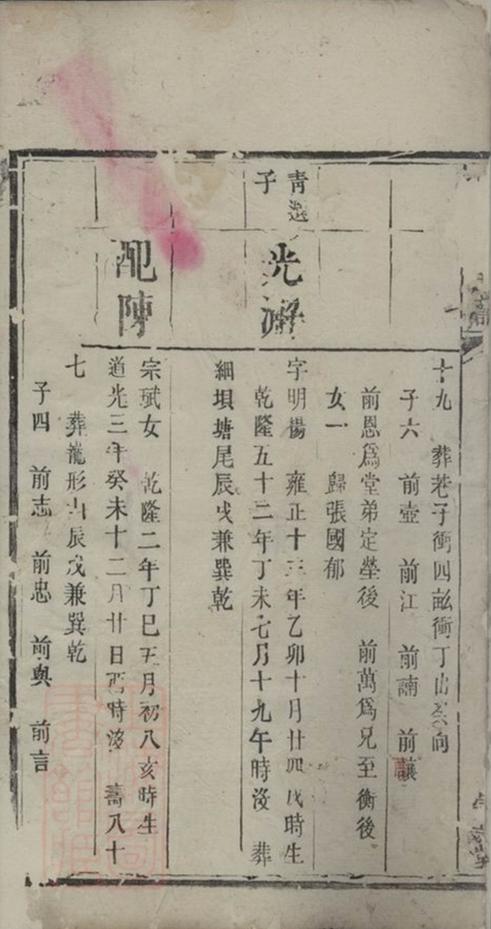 十九 葬巷子衝四畝衝丁山癸向
子六 前壺 前江 前諵 前讓
前恩爲堂弟定塋後 前萬爲兄至衡後
女一 歸張國郁
青選子
光濟
字明楊 雍正十三年乙卯十月廿四戌時生
乾隆五十二年丁未七月十九午時沒 葬
細垻塘尾辰戌兼巽乾
配陳
宗珷女 乾隆二年丁巳五月初八亥時生
道光三年癸未十二月廿日酉時沒 壽八十
七 葬龍形山辰戌兼巽乾
子四 前志 前忠 前與 前言